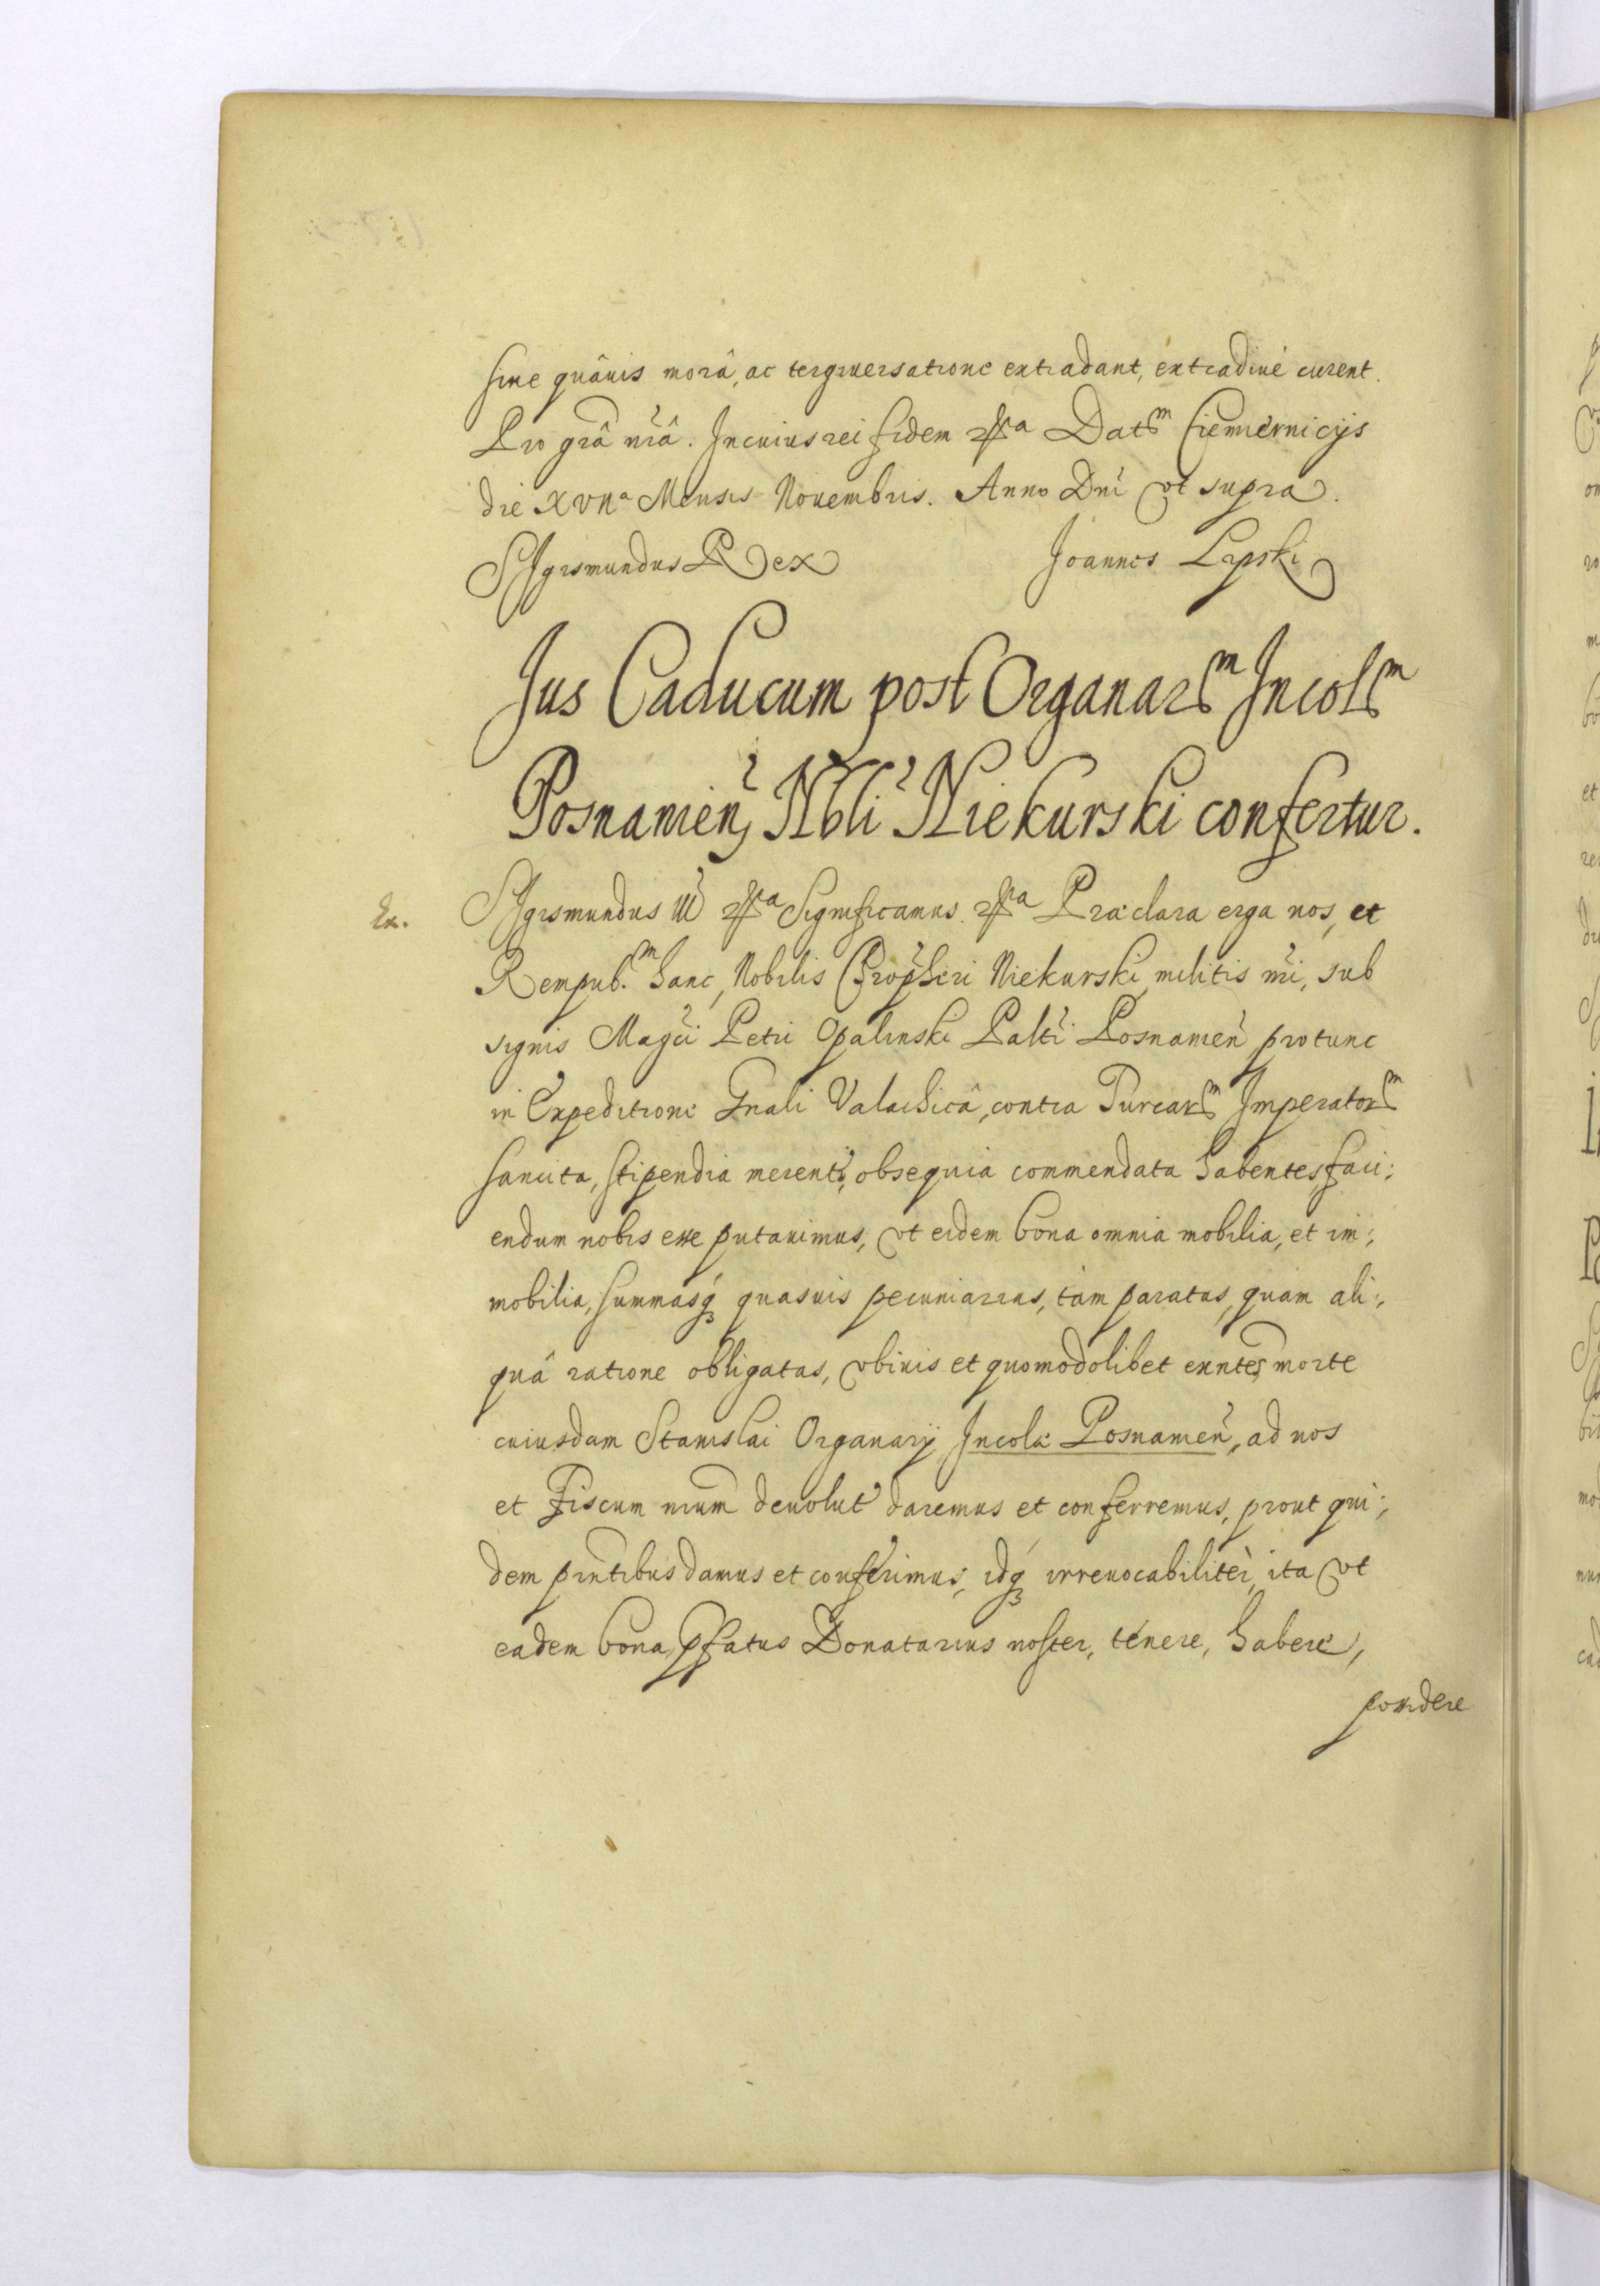 sine quâuis morâ, ac tergiuersatione extradant, extradiué curent.
Pro grâ nrâ. In cuius rei fidem &a Datm Ciemiernicijs
die XVIIa Mensis Nouembris. Anno Dni vt supra.
SIgismundus Rex Joannes Lipski
Jus Caducum post Organarm Incolm
Posnamien, Nbli Niekurski confertur.
Ex. SIgismundus III &a Significamus &a Præclara erga nos, et
Rempub.m hanc, Nobilis Niekurski, militis nri, sub
signis Magci Petri Opalinski Palti Posnamen protunc
in Expeditione Gnali Valachicâ, contra Turcarm Imperatorm
sancita, stipendia merentis, obsequia commendata habentes, faci:
endum nobis esse putauimus, vt eidem bona omnia mobilia, et im:
mobilia, summasq quasuis pecuniarias, tam paratas, quam ali:
quâ ratione obligatas, vbiuis et quomodolibet exntes, morte
cuiusdam Stanislai Organarij Incolæ Posnamen, ad nos
et Fiscum nrum deuolut daremus et conferremus, prout qui:
dem pntibus damus et conferimus, idq irreuocabiliter, ita vt
eadem bona pfatus Donatarius noster, tenere, habere,
possidere